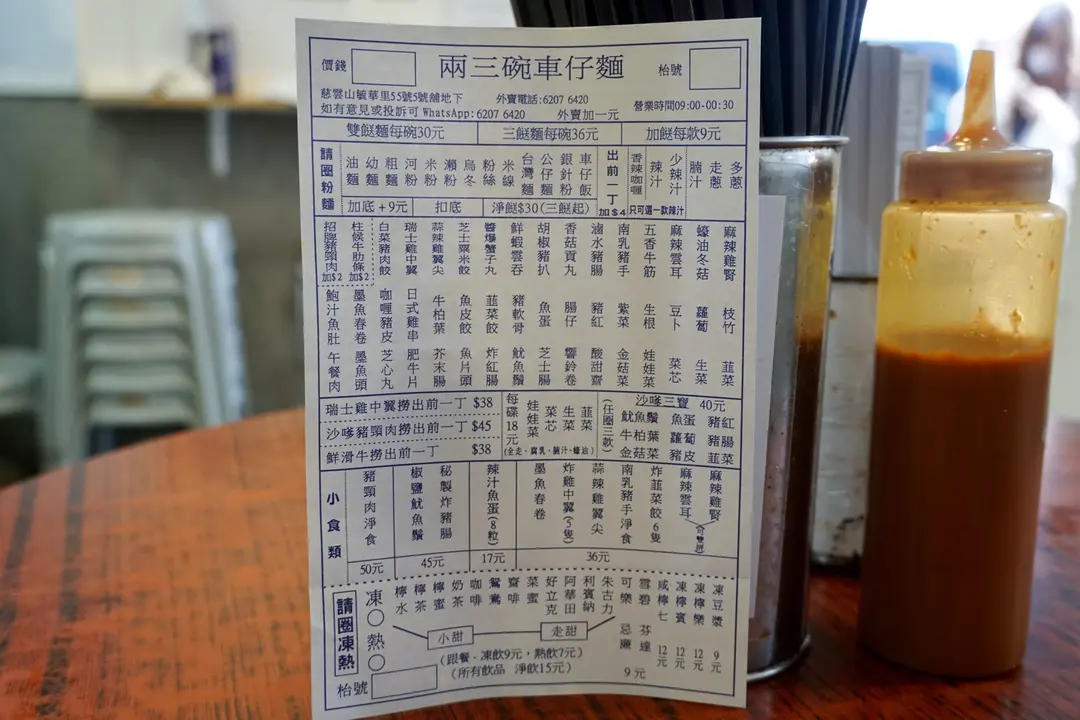 價錢 兩三碗車仔麵 枱號
慈雲山毓華里55號5號舖地下 外賣電話:6207 6420
如有意見或投訴可 WhatsApp: 6207 6420 外賣加一元 營業時間09:00-00:30
雙餸麵每碗30元 三餸麵每碗36元 加餸每款9元
請圈粉麵
油麵 幼麵 粗麵 河粉 米粉 瀨粉 烏冬 粉絲 米線 台灣麵 公仔麵 銀針粉 車仔飯 出前一丁加$4 香辣咖喱 辣汁 少辣汁 腩汁 走蔥 多蔥
只可選一款辣汁
加底+9元 扣底 淨餸$30(三餸起)
招牌豬頸肉加$2 柱候牛肋條加$2 白菜豬肉餃 瑞士雞中翼 蒜辣雞翼尖 芝士粟米餃 醬爆蟹子丸 鮮蝦雲吞 胡椒豬扒 香菇貢丸 滷水豬腸 南乳豬手 五香牛筋 麻辣雲耳 蠔油冬菇 麻辣雞腎
鮑汁魚肚 墨魚春卷 咖喱豬皮 日式雞串 牛柏葉 魚皮餃 韮菜餃 豬軟骨 魚蛋 腸仔 豬紅 紫菜 生根 豆卜 蘿蔔 枝竹
午餐肉 墨魚頭 芝心丸 肥牛片 芥末腸 魚片頭 炸紅腸 魷魚鬚 芝士腸 響鈴卷 酸甜齋 金菇菜 娃娃菜 菜芯 生菜 韮菜
瑞士雞中翼撈出前一丁 $38
沙嗲豬頸肉撈出前一丁 $45
鮮滑牛撈出前一丁 $38
每碟18元 娃娃菜 菜芯 生菜 韮菜
(全走、腐乳、腩汁、蠔油)
沙嗲三寶 40元
(任圈三款)
魷魚鬚 魚蛋 豬紅
牛柏葉 蘿蔔 豬腸
金菇菜 豬皮 韮菜
小食類
豬頸肉淨食 椒鹽魷魚鬚 秘製炸豬腸 辣汁魚蛋(8粒) 墨魚春卷 炸雞中翼(5隻) 蒜辣雞翼尖 南乳豬手淨食 炸韮菜餃6隻 麻辣雲耳 麻辣雞腎
(可雙拼)
50元 45元 17元 36元
請圈凍熱
凍 熱
檸水 檸茶 檸蜜 奶茶 咖啡 鴛鴦 齋啡 菜蜜 好立克 阿華田 利賓納 朱古力 可樂 雪碧 咸檸七 凍檸賓 凍檸樂 凍豆漿
忌廉 芬達
小甜 走甜
9元 12元 12元 12元 9元
(跟餐-凍飲9元，熱飲7元)
(所有飲品 淨飲15元)
枱號